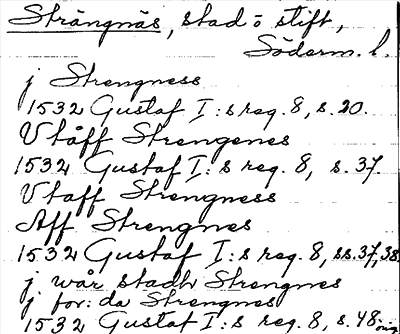 Strängnäs, stad o stift,
Söderm. l.
j Strengness
1532 Gustaf I:s reg. 8, s. 20.
Vtåff Strengenes
1532 Gustaf I:s reg. 8, s. 37.
Vtaff Strengness
Aff Strengnes
1532 Gustaf I:s reg. 8, ss. 37, 38
j wår stadh Strengnes
j for:da Strengnes
1532 Gustaf I:s reg. 8, s. 48.